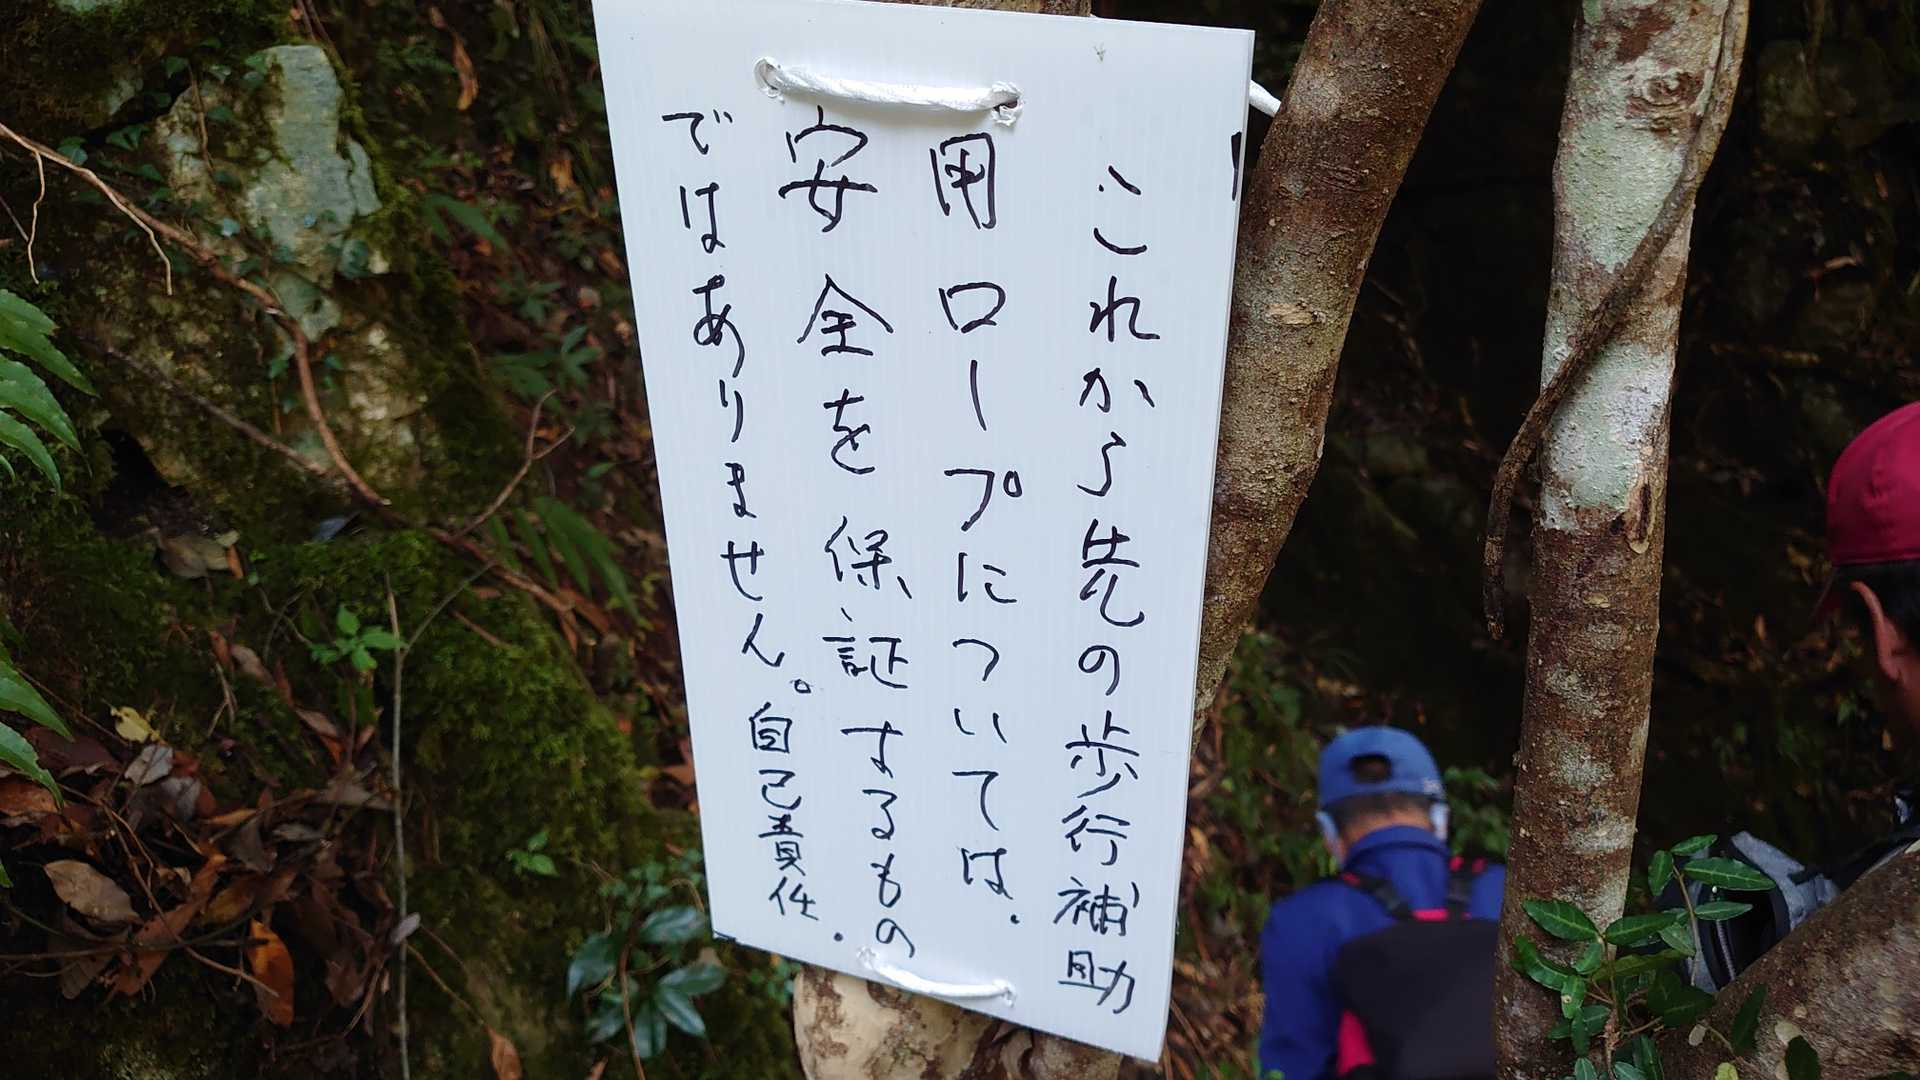 これから先の歩行補助
用ロープについては.
安全を保証するもの
ではありません。自己責任.